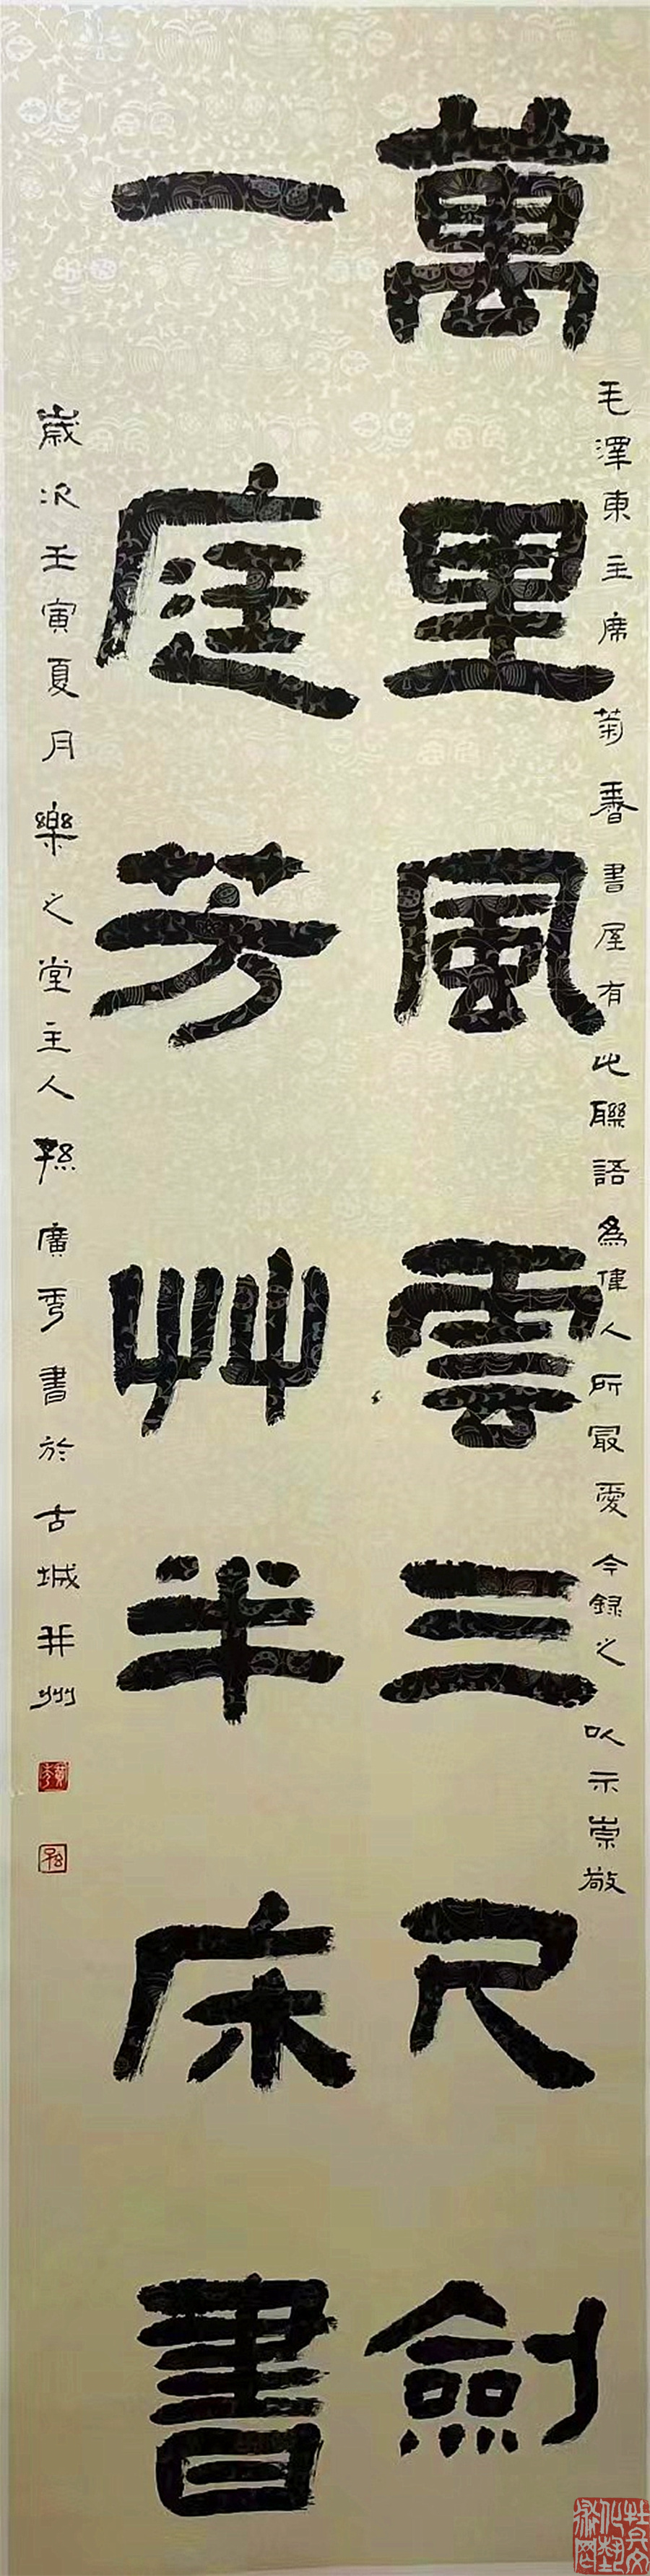 萬里風雲三尺劍
一庭芳艸半床書
毛澤東主席菊香書屋有此聯語為偉人所最愛今録之以示崇敬
歲次壬寅夏月樂之堂主人孫廣秀書於古城并州